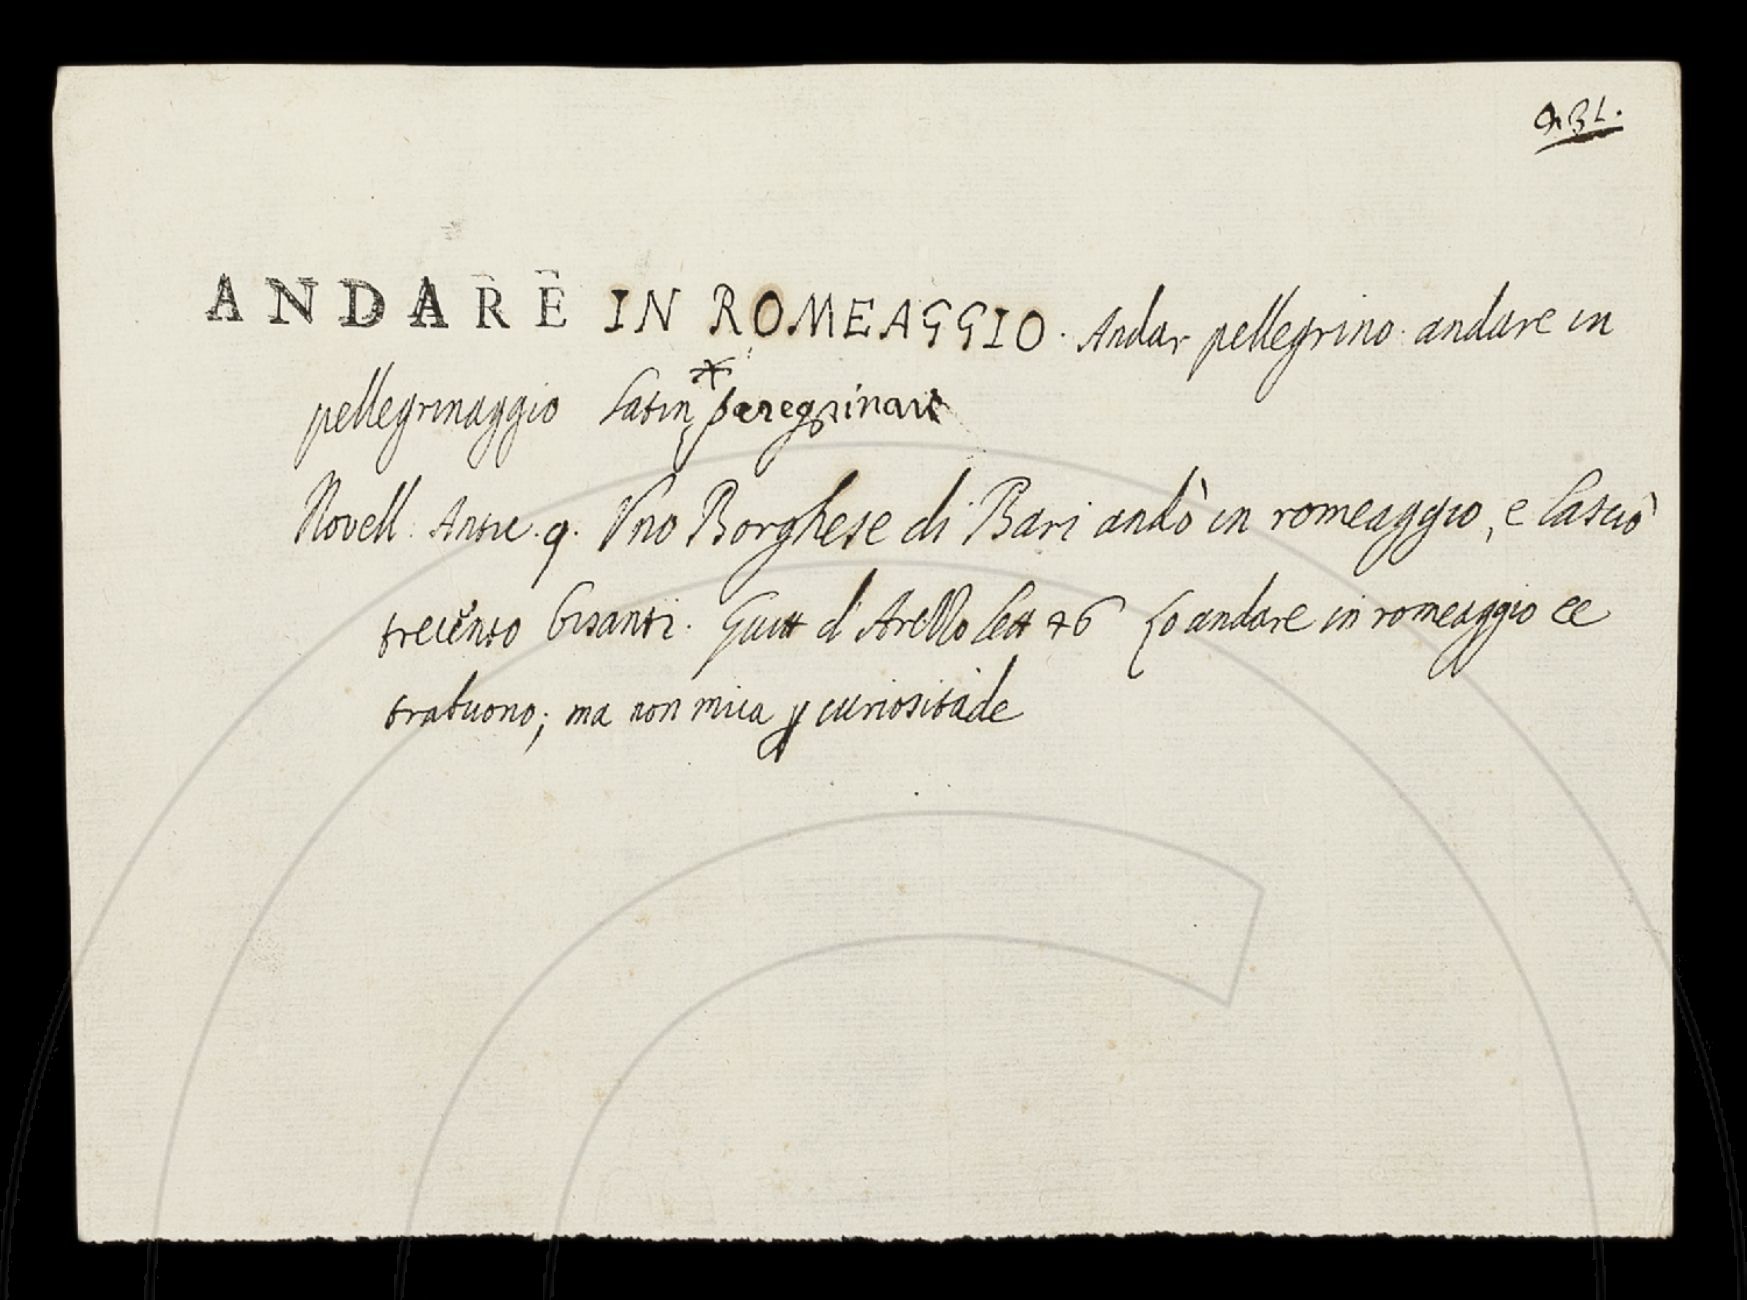 ANDARE IN ROMEAGGIO. Andar pellegrino. andare in
pellegrinaggio Latin. * peregrinare
Novell. Antic. 9. Vno Borghese di Bari andò in romeaggio, e lasciò
trecento bisanti. Guitt d'Arezzo lett 26 Lo andare in romeaggio ee
trabuono; ma non mica p curiositade